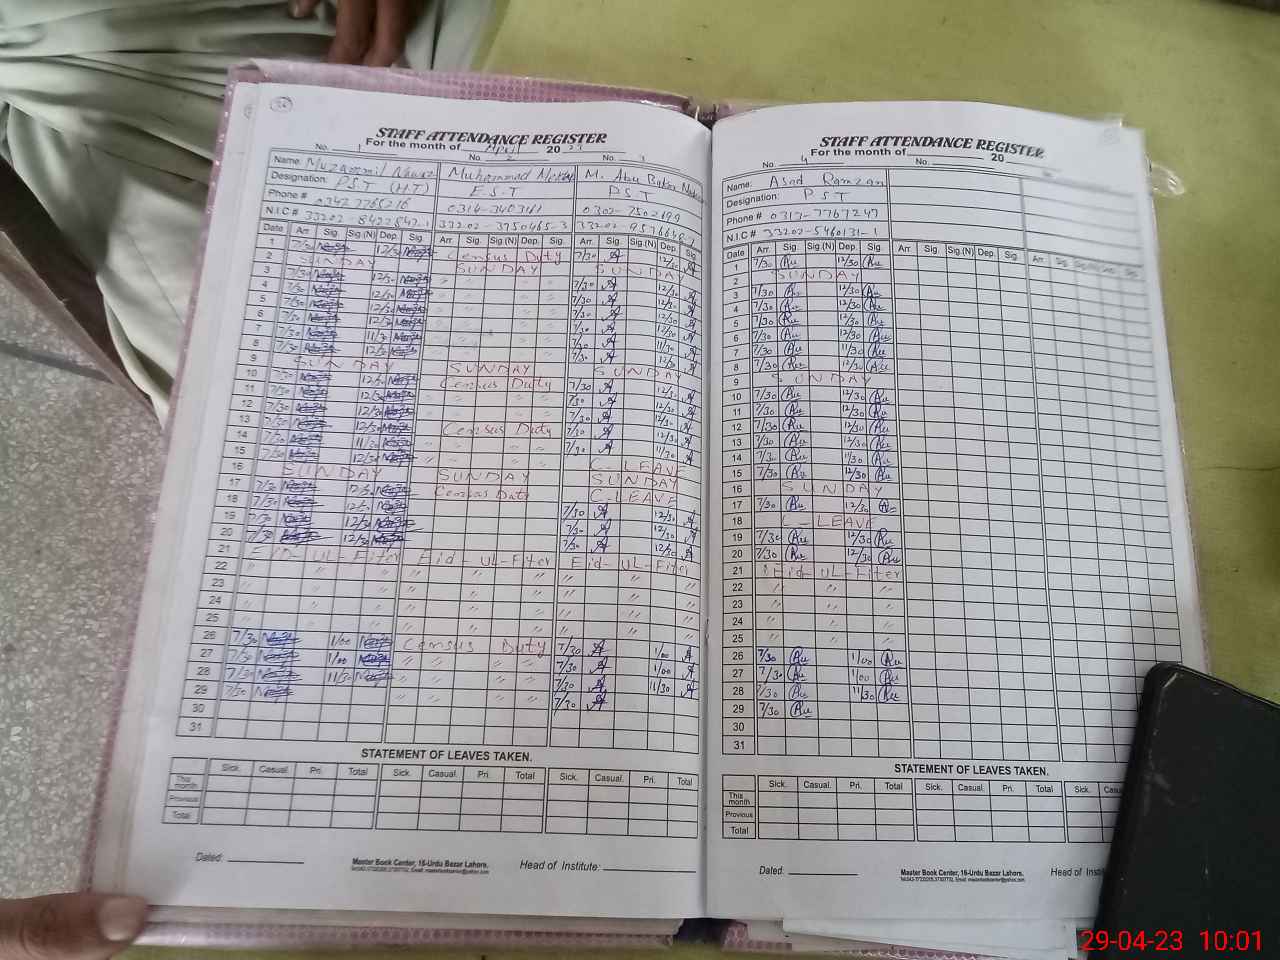 STAFF ATTENDANCE REGISTER
For the month of April 20 23
No. 1 No. 2 No. 3
Name: Muzammil Nawaz Muhammad M. Abu Bakar
Designation: P.S.T (H.T) E.S.T P.S.T
Phone # 0342 7765216 0314-3403411 0302-7502499
N.I.C # 33202-8422842-1 33202-3750465-3 33202-
Date Arr. Sig. Sig.(N) Dep. Sig. Arr. Sig. Sig.(N) Dep. Sig. Arr. Sig. Sig.(N) Dep. Sig.
1 7/30 12/30 Census Duty 7/30 12/30
2 SUNDAY SUNDAY SUNDAY
3 7/30 12/30 " " " 7/30 12/30
4 7/30 12/30 " " " 7/30 12/30
5 7/30 12/30 " " " 7/30 12/30
6 7/30 12/30 " " " 7/30 12/30
7 7/30 11/30 " " " 7/30 11/30
8 7/30 12/30 " " " 7/30 12/30
9 SUNDAY SUNDAY SUNDAY
10 7/30 12/30 Census Duty 7/30 12/30
11 7/30 12/30 " " " 7/30 12/30
12 7/30 12/30 " " " 7/30 12/30
13 7/30 12/30 Census Duty 7/30 12/30
14 7/30 11/30 " " " 7/30 11/30
15 7/30 12/30 " " " C-LEAVE
16 SUNDAY SUNDAY SUNDAY
17 7/30 12/30 Census Duty C-LEAVE
18 7/30 12/30 7/30 12/30
19 7/30 12/30 7/30 12/30
20 7/30 12/30 7/30 12/30
21 EID-UL-Fiter Eid-UL-Fiter Eid-UL-Fiter
22 " " " " " " " " "
23 " " " " " " " " "
24 " " " " " " " " "
25 " " " " " " " " "
26 7/30 1/00 Census Duty 7/30 1/00
27 7/30 1/00 " " " " 7/30 1/00
28 7/30 11/30 " " " " 7/30 11/30
29 7/30 " " " " 7/30
30
31
STATEMENT OF LEAVES TAKEN.
Sick. Casual. Pri. Total Sick. Casual. Pri. Total Sick. Casual. Pri. Total
This month
Previous
Total
Dated: Master Book Center, 16-Urdu Bazar Lahore. Head of Institute:
STAFF ATTENDANCE REGISTER
For the month of 20
No. 4 No. No.
Name: Asad Ramzan
Designation: P S T
Phone # 0317-7767247
N.I.C # 33202-5460131-1
Date Arr. Sig. Sig.(N) Dep. Sig. Arr. Sig. Sig.(N) Dep. Sig. Arr. Sig. Sig.(N) Dep. Sig.
1 7/30 12/30
2 SUNDAY
3 7/30 12/30
4 7/30 12/30
5 7/30 12/30
6 7/30 12/30
7 7/30 11/30
8 7/30 12/30
9 SUNDAY
10 7/30 12/30
11 7/30 12/30
12 7/30 12/30
13 7/30 12/30
14 7/30 11/30
15 7/30 12/30
16 SUNDAY
17 7/30 12/30
18 C-LEAVE
19 7/30 12/30
20 7/30 12/30
21 Eid-UL-Fiter
22 " " "
23 " " "
24 " " "
25 " " "
26 7/30 1/00
27 7/30 1/00
28 7/30 11/30
29 7/30
30
31
STATEMENT OF LEAVES TAKEN.
Sick. Casual. Pri. Total Sick. Casual. Pri. Total Sick.
This month
Previous
Total
Dated: Master Book Center, 16-Urdu Bazar Lahore. Head of
29-04-23 10:01